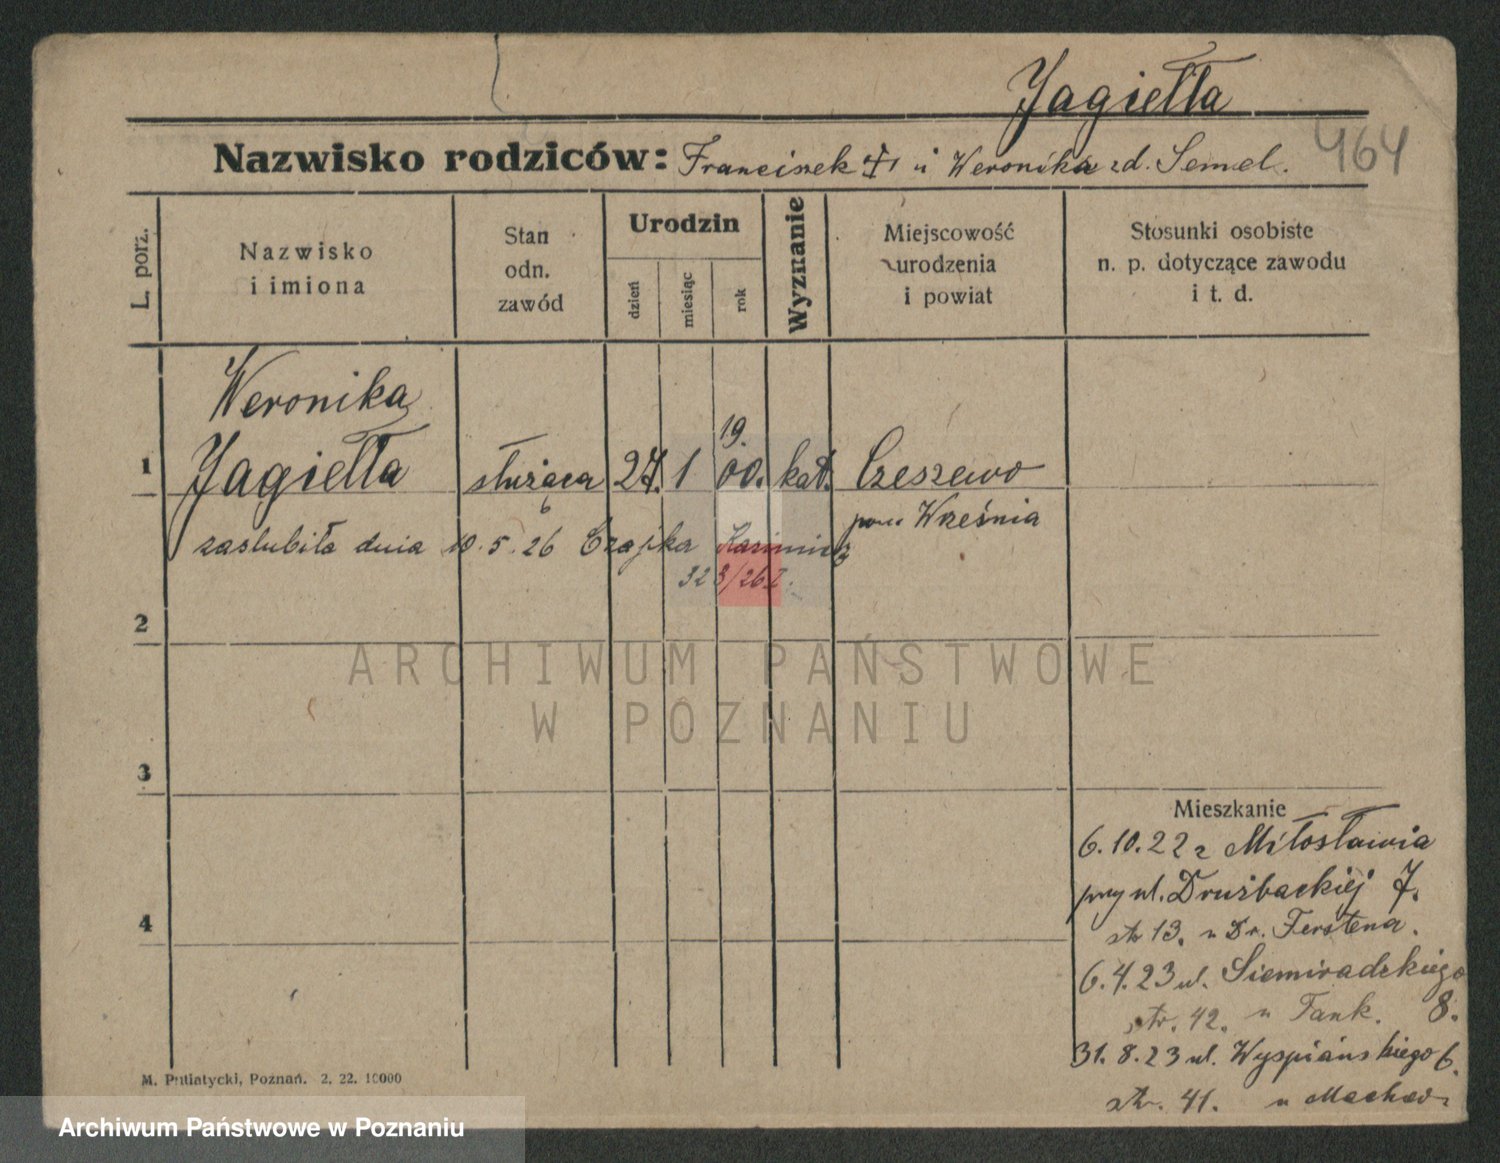 Jagiełła
464
Nazwisko rodziców: Franciszek i Weronika zd. Semel.
L. porz.
Nazwisko
i imiona
Stan
odn.
zawód
Urodzin
dzień
miesiąc
rok
Wyznanie
Miejscowość
urodzenia
i powiat
Stosunki osobiste
n. p. dotyczące zawodu
i t. d.
Weronika
19.
1 Jagiełła służąca 27. 1 00. kat. Czeszewo
pow Września
zaślubiła dnia 10.5.26 Czajka Kazimierz
6
323/26 I.
2
ARCHIWUM PAŃSTWOWE
W POZNANIU
3
Mieszkanie
6.10.22 z Miłosławia
przy ul. Drużbackiej 7.
str 13. u Dr. Ferstena.
4
6.4.23 ul. Siemiradzkiego
8.
str. 42. u Fank.
31.8.23 ul. Wyspiańskiego 6.
str. 41. u
M. Putiatycki, Poznań. 2. 22. 10000
Archiwum Państwowe w Poznaniu